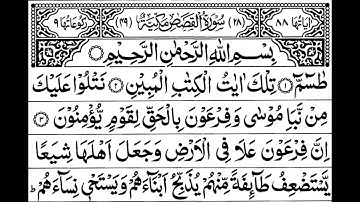 اٰيَاتُهَا ٨٨ (٢٨) سُوْرَةُ الْقَصَصِ مَكِّيَّةٌ (٤٩) رُكُوْعَاتُهَا ٩
بِسْمِ اللّٰهِ الرَّحْمٰنِ الرَّحِيْمِ
طٰسٓمّٓ ۝١ تِلْكَ اٰيٰتُ الْكِتٰبِ الْمُبِيْنِ ۝٢ نَتْلُوْا عَلَيْكَ
مِنْ نَّبَاِ مُوْسٰى وَفِرْعَوْنَ بِالْحَقِّ لِقَوْمٍ يُّؤْمِنُوْنَ ۝٣
اِنَّ فِرْعَوْنَ عَلَا فِى الْاَرْضِ وَجَعَلَ اَهْلَهَا شِيَعًا
يَّسْتَضْعِفُ طَآئِفَةً مِّنْهُمْ يُذَبِّحُ اَبْنَآءَهُمْ وَيَسْتَحْىٖ نِسَآءَهُمْ ط